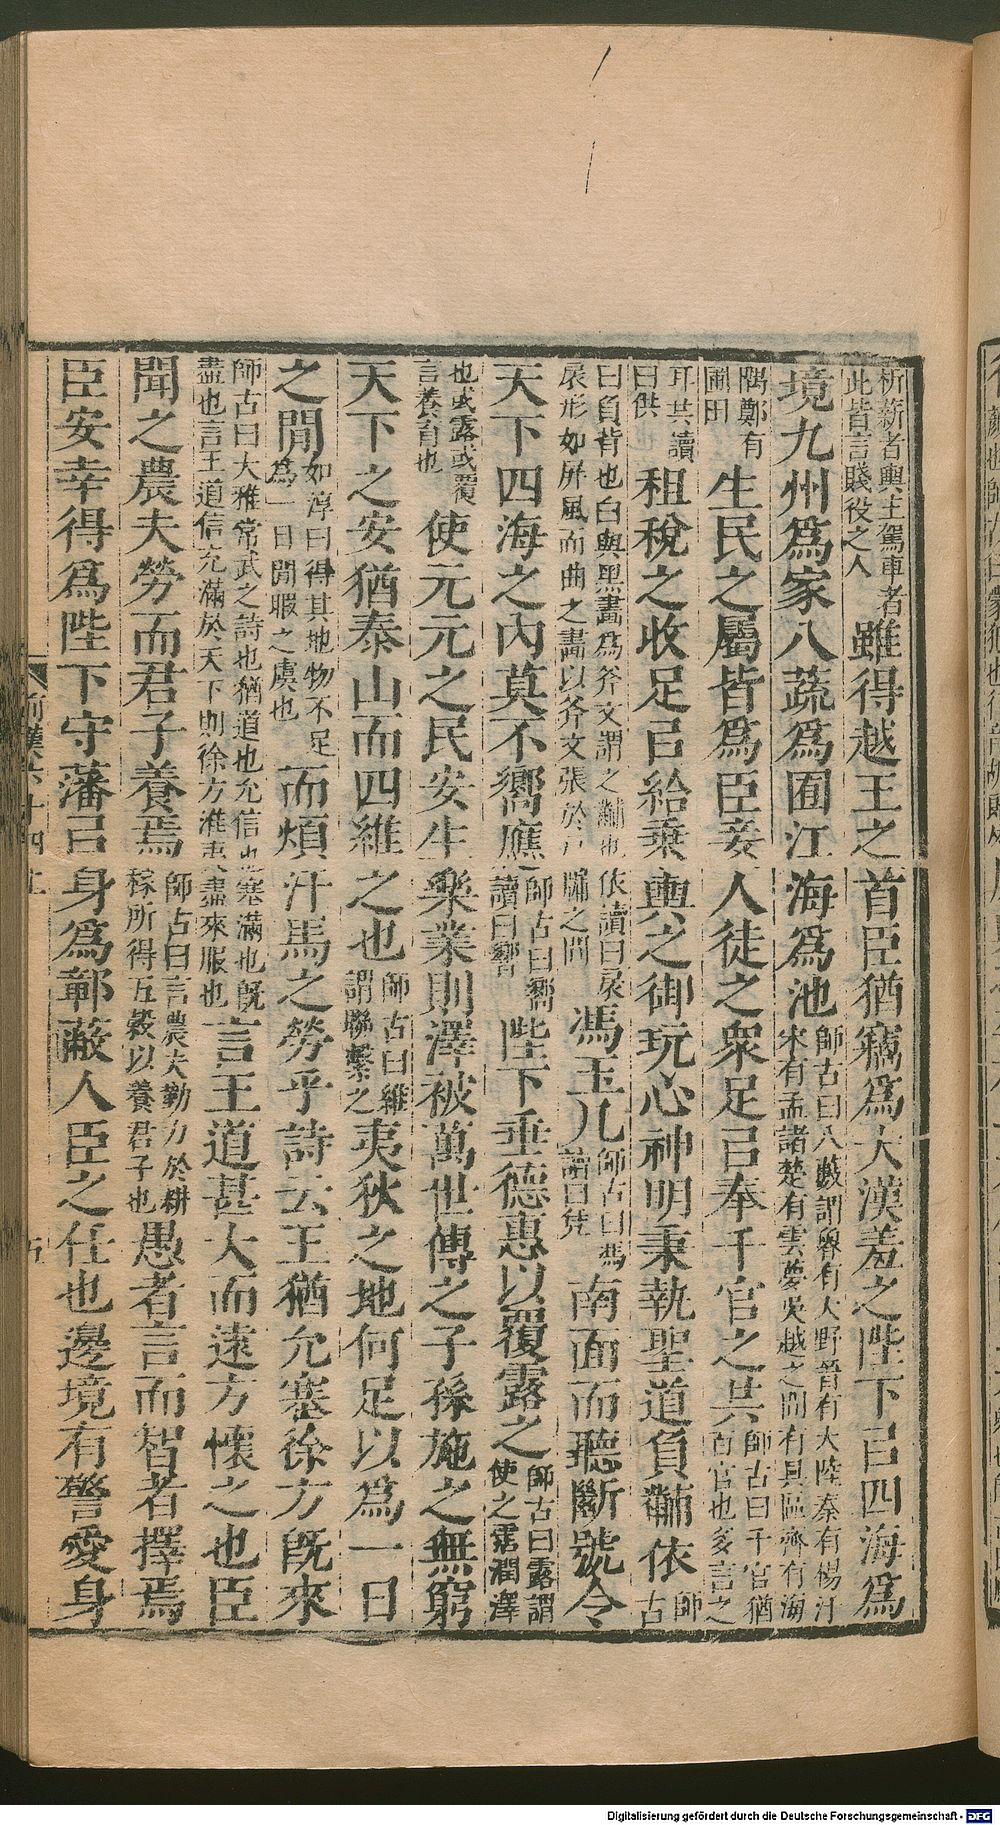 析薪者輿主駕車者此皆言賤役之人雖得越王之首臣猶竊爲大漢羞之陛下㠯四海爲
境九州爲家八蔬爲囿江海爲池師古曰八藪謂魯有大野晉有大陸秦有楊汙宋有孟諸楚有雲夢吳越之閒有具區齊有海
隅鄭有圃田生民之屬皆爲臣妾人徒之衆足㠯奉千官之共師古曰千官猶百官也多言之
耳共讀曰供租稅之收足㠯給乗輿之御玩心神明秉執聖道負黼依師古
曰負背也白與黑畫爲斧文謂之黼也依讀曰扆扆形如屏風而曲之畫以斧文張於戶牖之閒馮玉几師古曰馮讀曰凭南面而聽斷號令
天下四海之內莫不嚮應師古曰嚮讀曰響陛下垂德惠以覆露之師古曰露謂使之霑潤澤
也或露或覆言養育也使元元之民安生樂業則澤被萬世傳之子孫施之無窮
天下之安猶泰山而四維之也師古曰維謂聯繫之夷狄之地何足以爲一日
之閒如淳曰得其地物不足爲一日閒暇之虞也而煩汗馬之勞乎詩云王猶允塞徐方旣來
師古曰大雅常武之詩也猶道也允信也塞滿也旣盡也言王道信充滿於天下則徐方淮夷盡來服也言王道甚大而遠方懷之也臣
聞之農夫勞而君子養焉師古曰言農夫勤力於耕稼所得五穀以養君子也愚者言而智者擇焉
臣安幸得爲陛下守藩㠯身爲鄣蔽人臣之任也邊境有警愛身
前漢六十四上
五
Digitalisierung gefördert durch die Deutsche Forschungsgemeinschaft - DFG